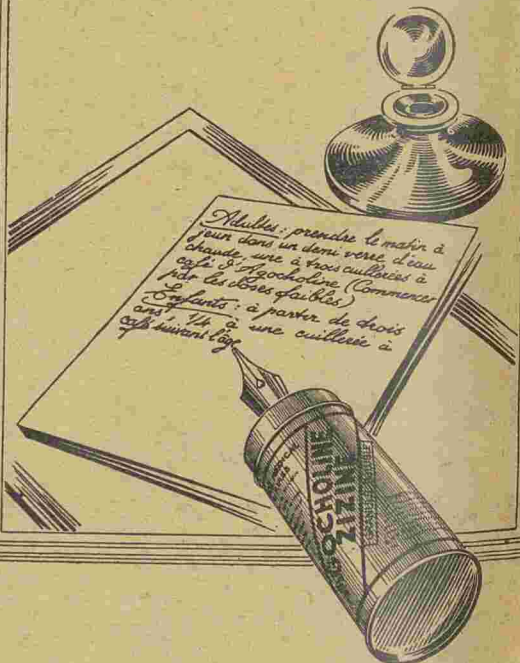 Adultes : prendre le matin à
jeun dans un demi verre d'eau
chaude, une à trois cuillerées à
café d'Agocholine (Commencer
par les doses faibles)
Enfants : à partir de trois
ans 1/4 à une cuillerée à
café suivant l'âge
AGOCHOLINE
ZIZINE